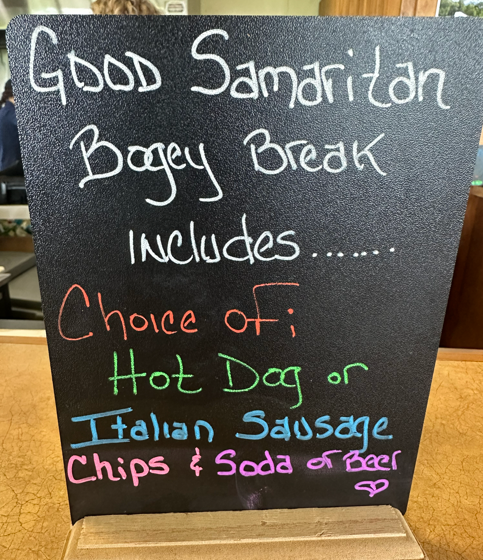 Good Samaritan
Bogey Break
Includes.......
Choice of;
Hot Dog or
Italian Sausage
Chips & Soda or Beer